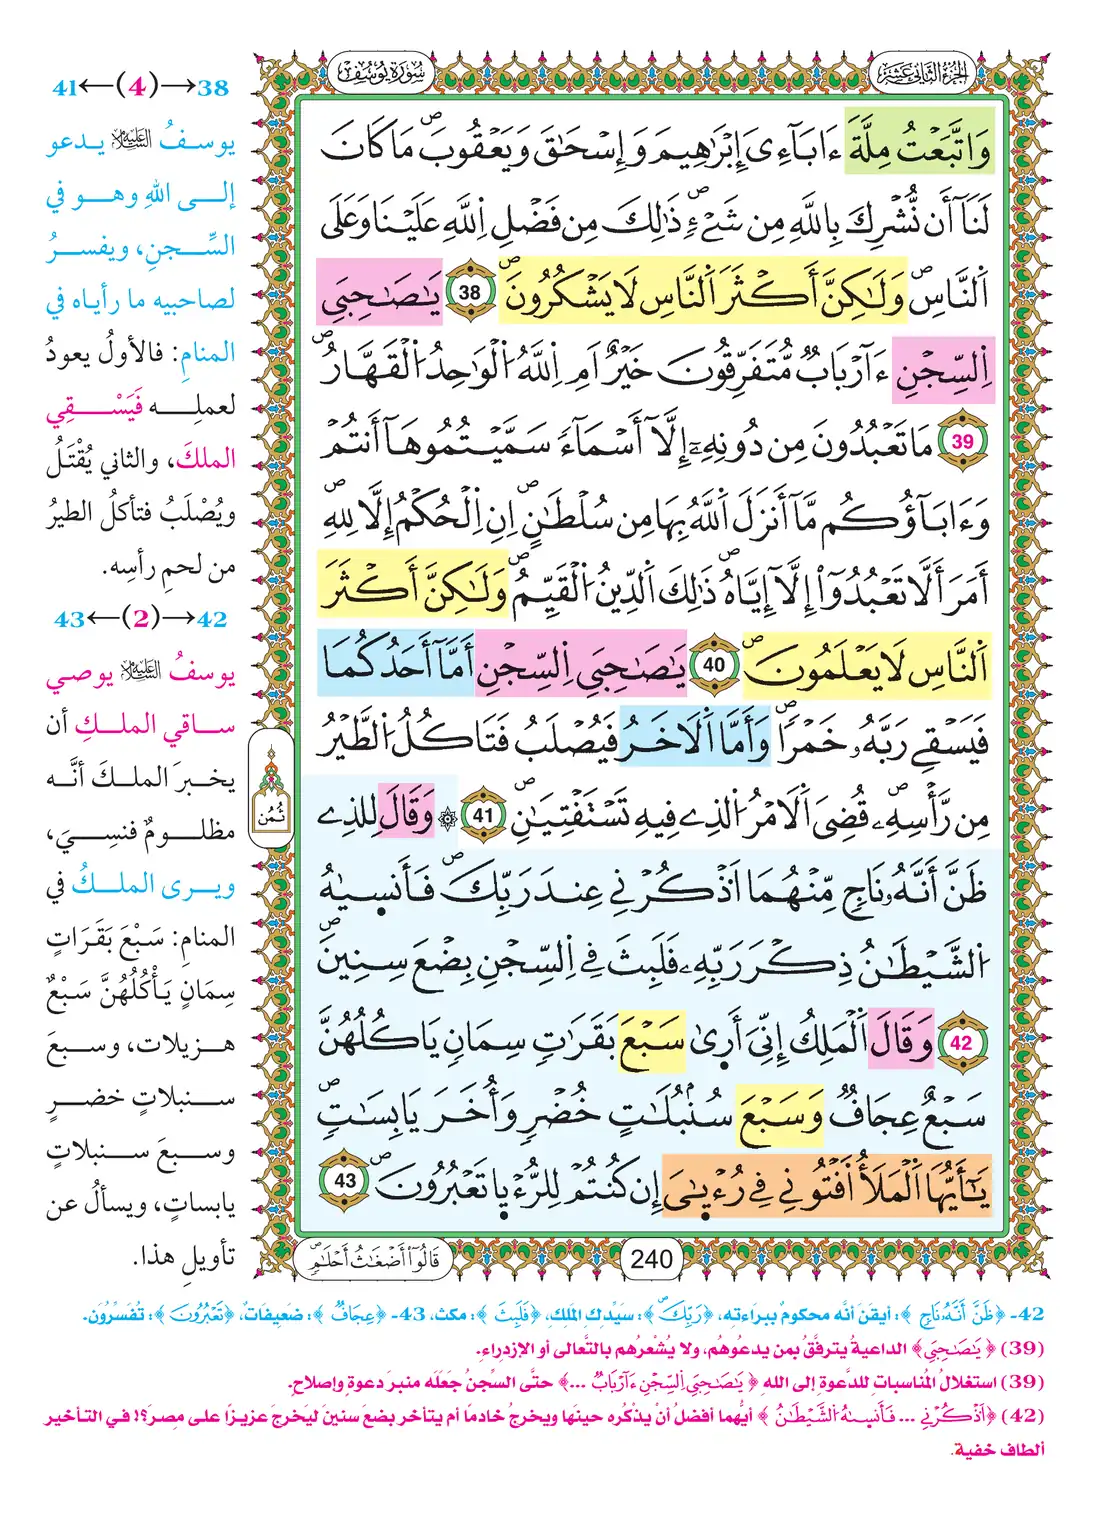 سُورَةُ يُوسُفَ
الجُزْءُ الثَّانِي عَشَرَ
وَاتَّبَعْتُ مِلَّةَ ءَابَآءِىٓ إِبْرَٰهِيمَ وَإِسْحَٰقَ وَيَعْقُوبَۖ مَا كَانَ
لَنَآ أَن نُّشْرِكَ بِاللَّهِ مِن شَےْءٖۖ ذَٰلِكَ مِن فَضْلِ اِللَّهِ عَلَيْنَا وَعَلَى
اَلنَّاسِۖ وَلَٰكِنَّ أَكْثَرَ اَلنَّاسِ لَا يَشْكُرُونَۖ 38 يَٰصَٰحِبَيِ
اِلسِّجْنِ ءَآرْبَابٞ مُّتَفَرِّقُونَ خَيْرٌ اَمِ اِللَّهُ اُلْوَٰحِدُ اُلْقَهَّارُۖ
39 مَا تَعْبُدُونَ مِن دُونِهِۦٓ إِلَّآ أَسْمَآءٗ سَمَّيْتُمُوهَآ أَنتُمْ
وَءَابَآؤُكُم مَّآ أَنزَلَ اَللَّهُ بِهَا مِن سُلْطَٰنٍۖ اِنِ اِلْحُكْمُ إِلَّا لِلهِۖ
أَمَرَ أَلَّا تَعْبُدُوٓاْ إِلَّآ إِيَّاهُۖ ذَٰلِكَ اَلدِّينُ اُلْقَيِّمُۖ وَلَٰكِنَّ أَكْثَرَ
اَلنَّاسِ لَا يَعْلَمُونَۖ 40 يَٰصَٰحِبَيِ اِلسِّجْنِ أَمَّآ أَحَدُكُمَا
فَيَسْقِے رَبَّهُۥ خَمْراٗۖ وَأَمَّا اَلَاخَرُ فَيُصْلَبُ فَتَاكُلُ اُلطَّيْرُ
مِن رَّأْسِهِۦۖ قُضِيَ اَلَامْرُ اُلذِے فِيهِ تَسْتَفْتِيَٰنِۖ 41 ۞ وَقَالَ لِلذِے
ظَنَّ أَنَّهُۥ نَاجٖ مِّنْهُمَا اَذْكُرْنِے عِندَ رَبِّكَۖ فَأَنسَىٰهُ
اُلشَّيْطَٰنُ ذِكْرَ رَبِّهِۦ فَلَبِثَ فِے اِلسِّجْنِ بِضْعَ سِنِينَۖ
42 وَقَالَ اَلْمَلِكُ إِنِّيَ أَرَىٰ سَبْعَ بَقَرَٰتٖ سِمَانٖ يَاكُلُهُنَّ
سَبْعٌ عِجَافٞ وَسَبْعَ سُنۢبُلَٰتٍ خُضْرٖ وَأُخَرَ يَابِسَٰتٖۖ
يَٰٓأَيُّهَا اَلْمَلَأُ اَفْتُونِے فِے رُءْيَٰىَ إِن كُنتُمْ لِلرُّءْيا تَعْبُرُونَۖ 43
قَالُوٓاْ أَضْغَٰثُ أَحْلَٰمٖۖ
240
ثُمُن
41←(4)→38
يوسفُ عليه السلام يدعو
إلى اللهِ وهو في
السِّجنِ، ويفسرُ
لصاحبيه ما رأياه في
المنامِ: فالأولُ يعودُ
لعملِه فَيَسْقِي
الملكَ، والثاني يُقْتَلُ
ويُصْلَبُ فتأكلُ الطيرُ
من لحمِ رأسِه.
43←(2)→42
يوسفُ عليه السلام يوصي
ساقي الملكِ أن
يخبرَ الملكَ أنَّه
مظلومٌ فنسِيَ،
ويرى الملكُ في
المنامِ: سَبْعَ بَقَرَاتٍ
سِمَانٍ يَأْكُلُهُنَّ سَبْعٌ
هزيلات، وسبعَ
سنبلاتٍ خضرٍ
وسبعَ سنبلاتٍ
يابساتٍ، ويسألُ عن
تأويلِ هذا.
42- ﴿ظَنَّ أَنَّهُۥ نَاجٖ﴾: أيقنَ أنَّه محكومٌ ببراءتِه، ﴿رَبِّكَۖ﴾: سيِّدِكِ المَلِكِ، ﴿فَلَبِثَ﴾: مكثَ، 43- ﴿عِجَافٞ﴾: ضَعِيفَاتٌ، ﴿تَعْبُرُونَۖ﴾: تُفَسِّرُونَ.
(39) ﴿يَٰصَٰحِبَيِ﴾ الداعيةُ يترفَّقُ بمن يدعُوهُم، ولا يُشْعرُهم بالتَّعالى أو الإزدِراءِ.
(39) استغلالُ المُناسباتِ للدَّعوةِ إلى اللهِ ﴿يَٰصَٰحِبَيِ اِلسِّجْنِ ءَآرْبَابٞ ...﴾ حتَّى السِّجنُ جَعَلَه منبرَ دعوةٍ وإصلاحٍ.
(42) ﴿اَذْكُرْنِے ... فَأَنسَىٰهُ اُلشَّيْطَٰنُ﴾ أيُّهما أفضلُ أنْ يذْكُره حينَها ويخرجُ خادمًا أم يتأخر بضعَ سنينَ ليَخرجَ عزيزًا على مصرَ؟! في التأخيرِ
ألطاف خفية.